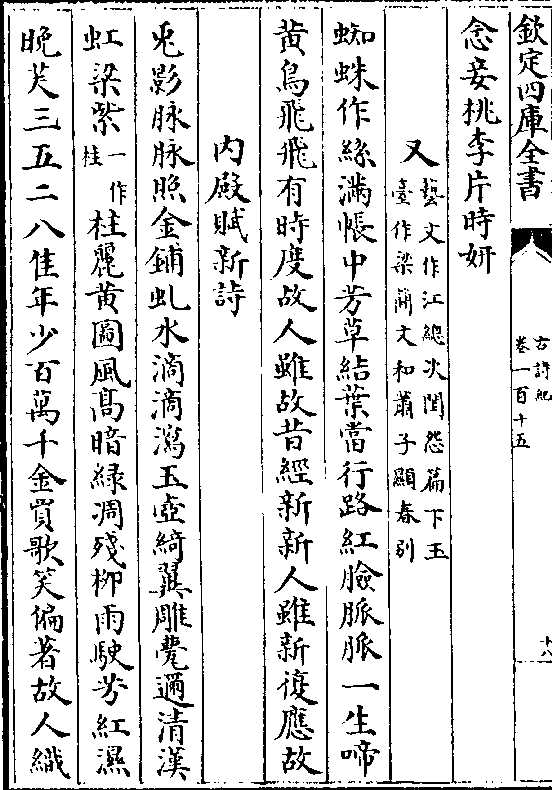 欽定四庫全書
古詩紀
卷一百十五
十六
念妾桃李片時妍
又
藝文作江總次閨怨篇下玉
臺作梁簡文和蕭子顯春别
蜘蛛作絲滿帳中芳草結葉當行路紅臉脈脈一生啼
黄鳥飛飛有時度故人雖故昔經新新人雖新復應故
内殿賦新詩
兎影脉脉照金鋪虬水滴滴瀉玉壺綺翼雕甍邇清漢
虹梁紫
一作
桂
柱麗黄圖風髙暗緑凋殘柳雨駛芳紅濕
晚芙三五二八佳年少百萬千金買歌笑偏著故人織